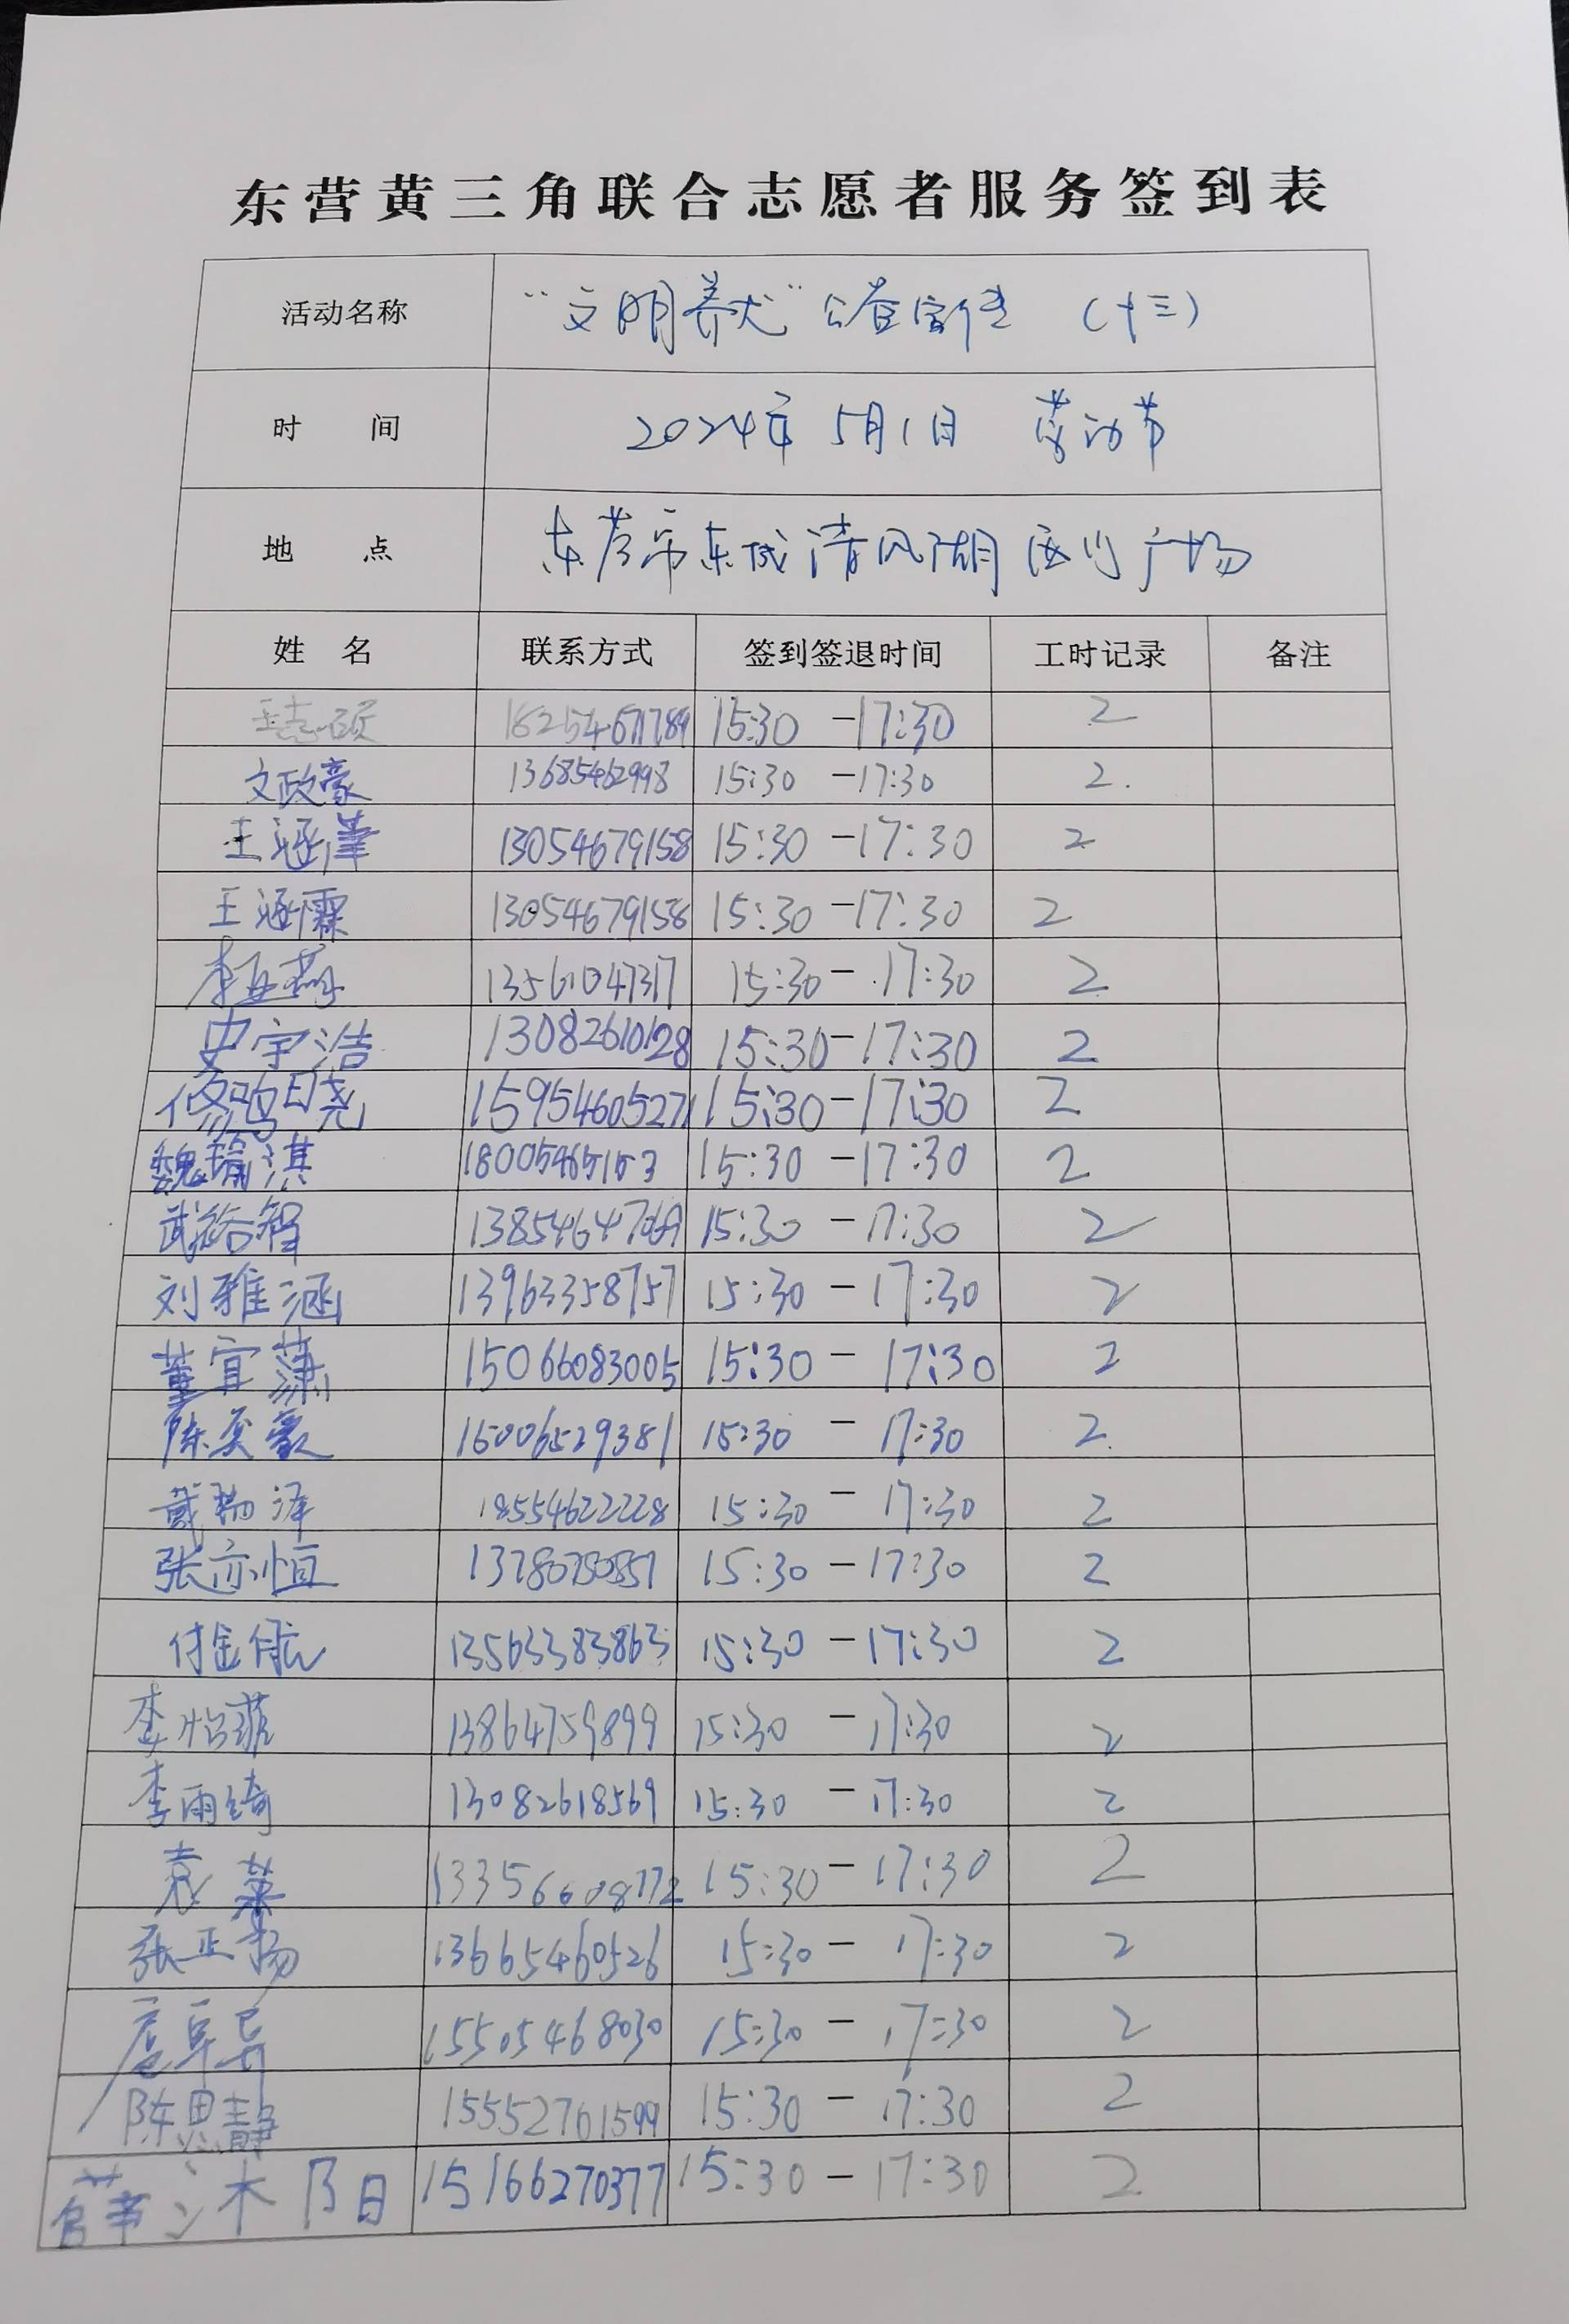 东营黄三角联合志愿者服务签到表
活动名称 “文明养犬”公益宣传 (十三)
时 间 2024年5月1日 劳动节
地 点 东营市东城清风湖 广场
姓 名 联系方式 签到签退时间 工时记录 备注
王志硕 15:30 -17:30 2
文政豪 13685462998 15:30 -17:30 2.
王涵 13054679158 15:30 -17:30 2
王涵霖 13054679158 15:30 -17:30 2
李亚 13561047317 15:30 - 17:30 2
史宇浩 13082610128 15:30-17:30 2
15954605271 15:30-17:30 2
魏瑜淇 18005465153 15:30 -17:30 2
武裕智 15:30 -17:30 2
刘雅涵 13963358757 15:30 -17:30 2
董宜 15066083005 15:30 - 17:30 2
陈奕豪 15006529381 15:30 - 17:30 2.
戴瑞泽 18554622228 15:30 - 17:30 2
张亦恒 15:30 -17:30 2
付金航 13563383863 15:30 -17:30 2
李怡菲 13864759899 15:30 - 17:30 2
李雨绮 13082618569 15:30 - 17:30 2
袁 莱 13356608772 15:30 - 17:30 2
张正扬 13665460526 15:30 - 17:30 2
15505468030 15:30 - 17:30 2
陈思静 15552761599 15:30 - 17:30 2
薛沐阳 15166270377 15:30 - 17:30 2